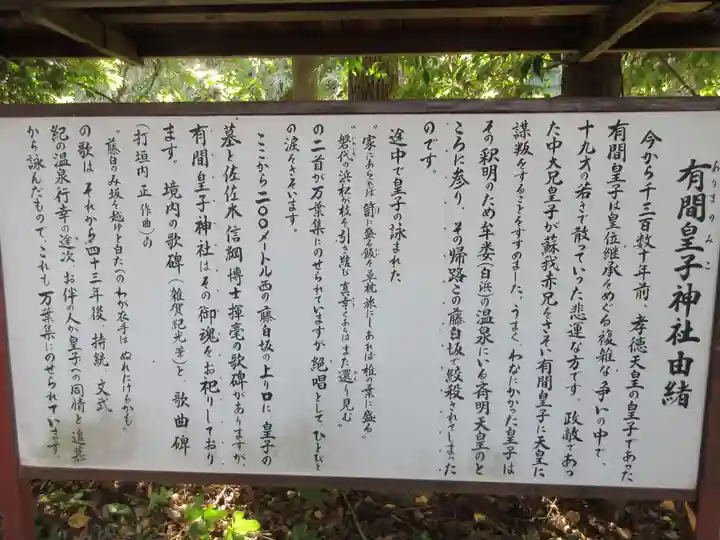 有間皇子神社由緒
ありまのみこ
今から千三百数十年前、孝徳天皇の皇子であった
有間皇子は皇位継承をめぐる複雑な争いの中で、
十九才の若さで散っていった悲運な方です。政敵であっ
た中大兄皇子が蘇我赤兄をさそい有間皇子に天皇に
謀叛をすることをすすめました。うまく、わなにかかった皇子は
その釈明のため牟婁(白浜)の温泉にいる斉明天皇のと
ころに参り、その帰路この藤白坂で絞殺されてしまった
のです。
途中で皇子の詠まれた
"家にあらば笥に盛る飯を草枕旅にしあれば椎の葉に盛る"
"磐代の浜松が枝を引き結び真幸くあらばまた還り見む"
の二首が万葉集にのせられていますが絶唱としてひとびと
の涙をさそいます。
ここから二〇〇メートル西の藤白坂の上り口に皇子の
墓と佐佐木信綱博士揮毫の歌碑がありますが、
有間皇子神社はその御魂をお祀りしており
ます。境内の歌碑(雑賀紀光筆)と、歌曲碑
(打垣内正作曲)の
"藤白のみ坂を越ゆと白たへのわが衣手はぬれにけるかも"
の歌は、それから四十三年後、持統、文武
紀の温泉行幸の途次、お伴の人が皇子への同情と追慕
から詠んだもので、これも万葉集にのせられています。